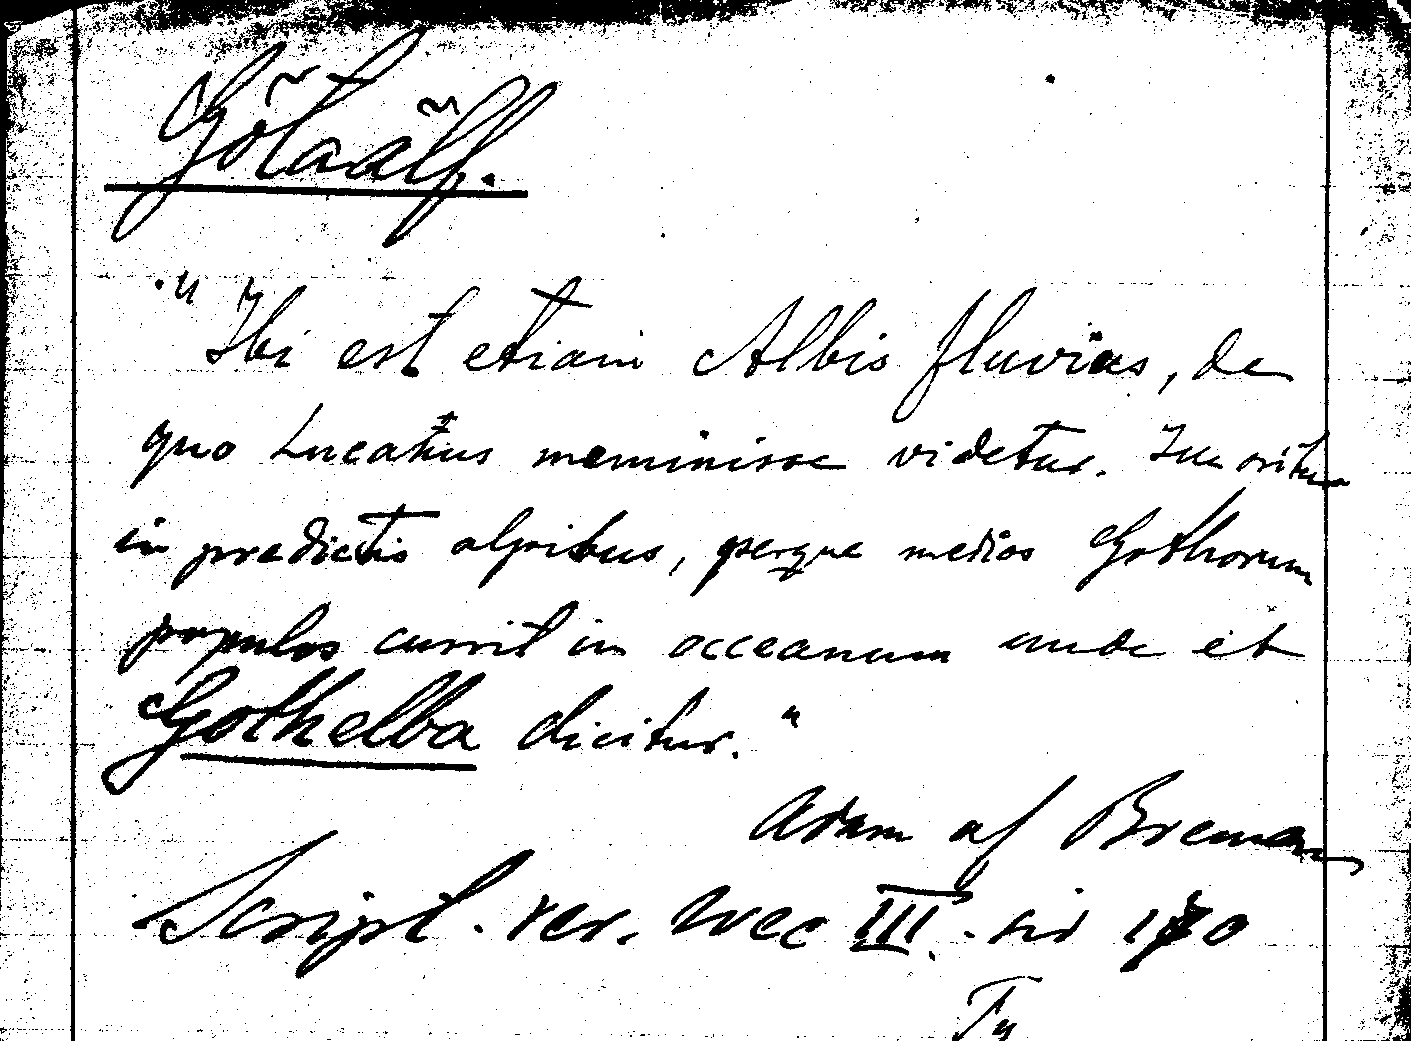 Götaälf.
"Ibi est etiam Albis fluvius, de
quo Lucanus meminisse videtur. oritur
in predictis alpibus, perque medios Gothorum
populos currit in occeanum unde et
Gothelba dicitur."
Adam af Bremen
Script. rer. svec III. sid